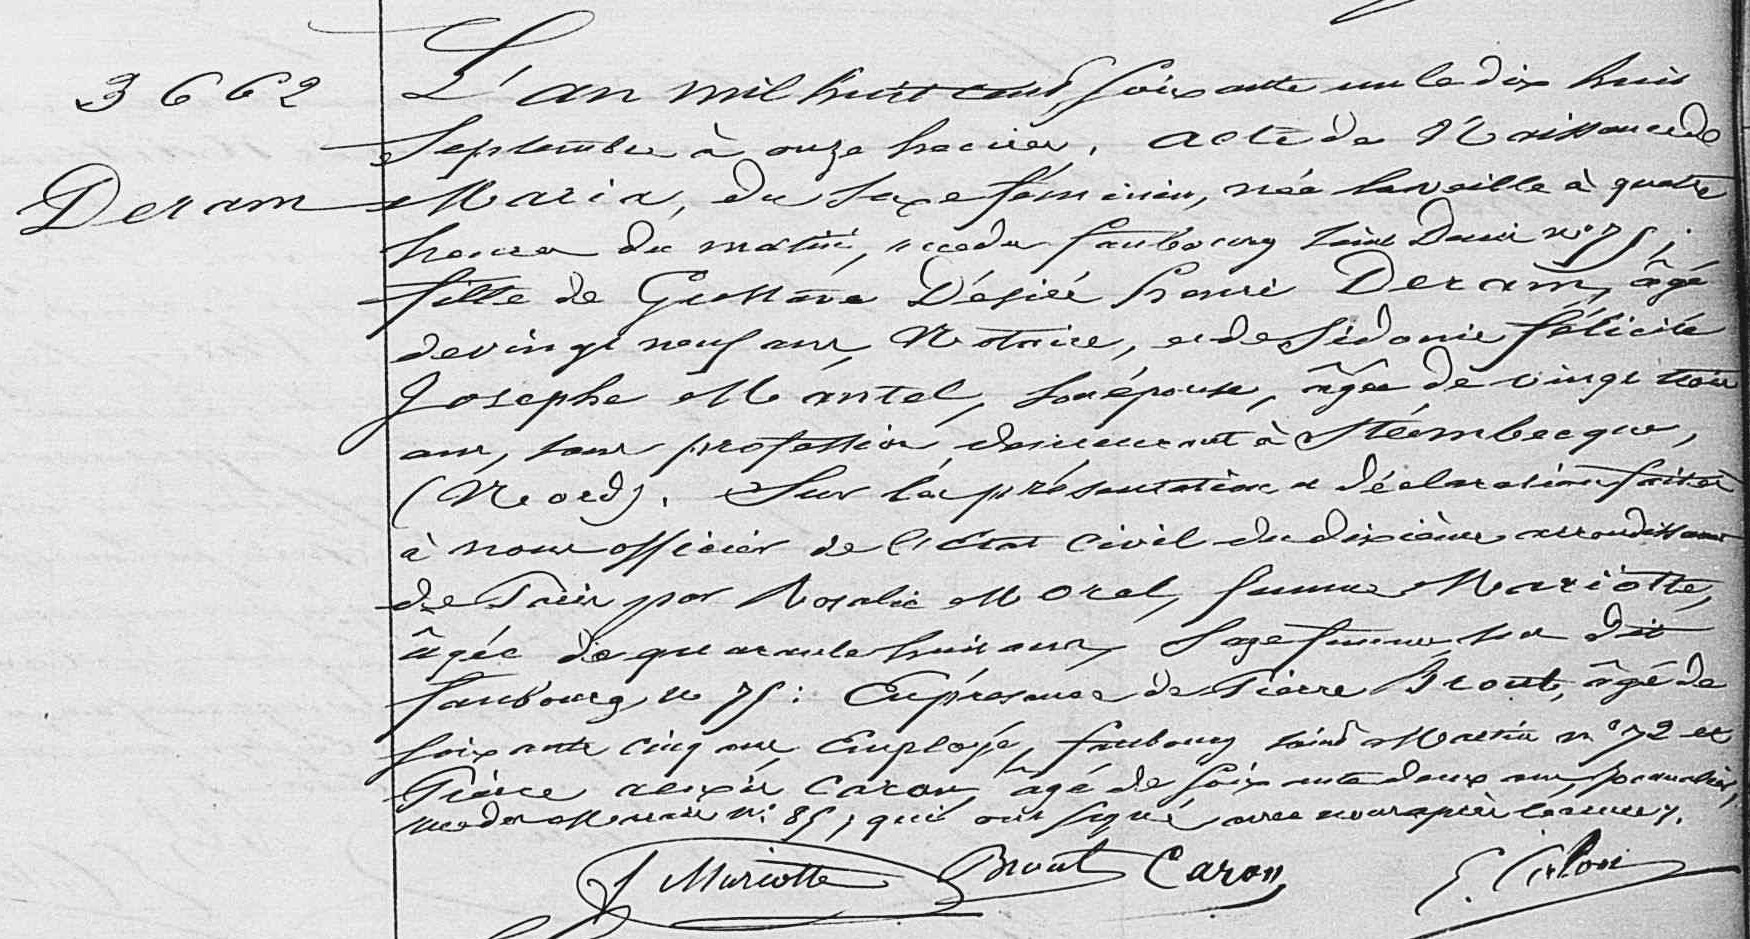 3662
Deram
L'an mil huit cent soixante un le dix huit
Septembre à onze heures, acte de Naissance de
Maria, du sexe féminin, née la veille à quatre
heures du matin, rue du faubourg Saint Denis n° 75;
fille de Gustave Désiré henri Deram, âgé
de vingt neuf ans, Notaire, et de Sidonie félicité
Josephe Mantel, son épouse, âgée de vingt trois
ans, sans profession, demeurant à Stéembecque,
(Nord). Sur la présentation et déclaration faites
à nous officier de l'Etat civil du dixième arrondissement
de Paris par Rosalie Morel, femme Mariotte,
âgée de quarante huit ans, Sage femme, sus dit
faubourg n° 75: En présence de Pierre Brout, âgé de
soixante cinq ans, Employé, faubourg saint Martin n° 72 et
Pierre alexis Caron, âgé de soixante deux ans,
rue des Marais n° 85, qui ont signé avec nous après lecture.
f Mariotte Brout Caron